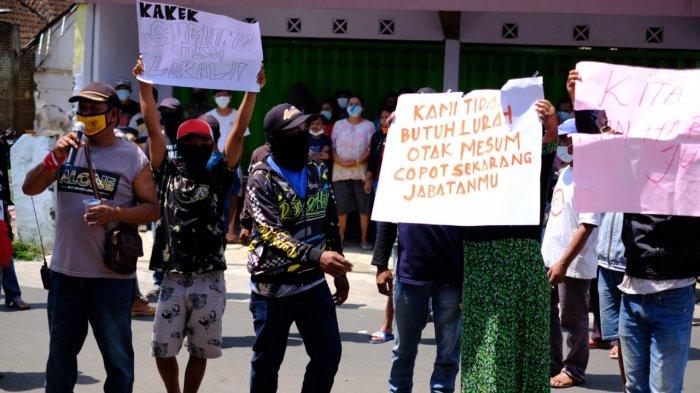 KAKEK
SUGIONO
VERSI
LOKAL!!
KAMI TIDAK
BUTUH LURAH
OTAK MESUM
COPOT SEKARANG
JABATANMU
KITA
ALONE